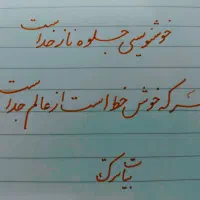 خوشنویسی جلوه ناز خداست
هر که خوش خط است از عالم جداست